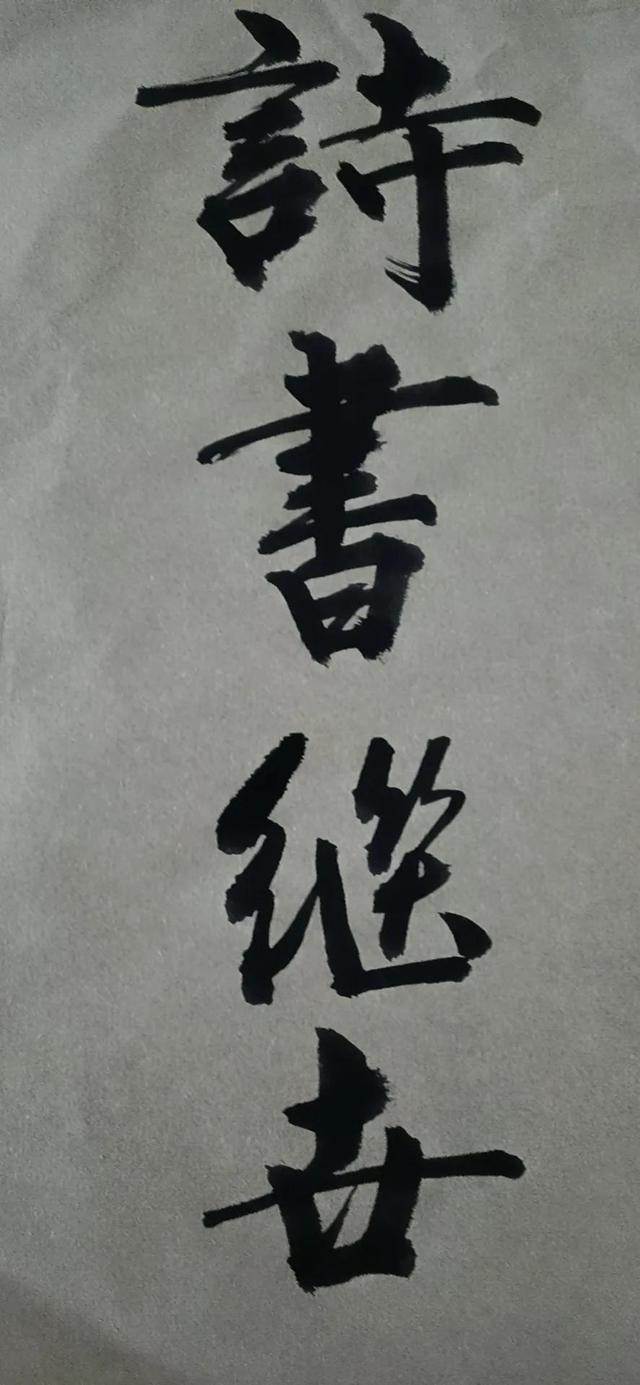 詩書繼世